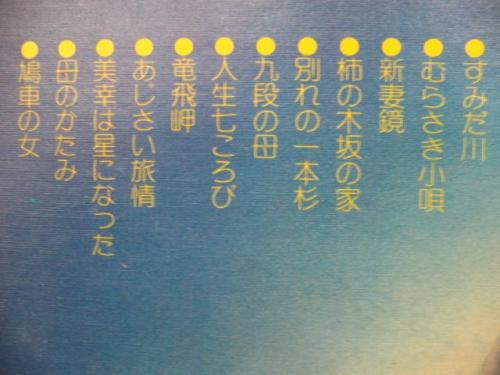 ●すみだ川
●むらさき小唄
●新妻鏡
●柿の木坂の家
●別れの一本杉
●九段の母
●人生七ころび
●竜飛岬
●あじさい旅情
●美幸は星になった
●母のかたみ
●鳩車の女